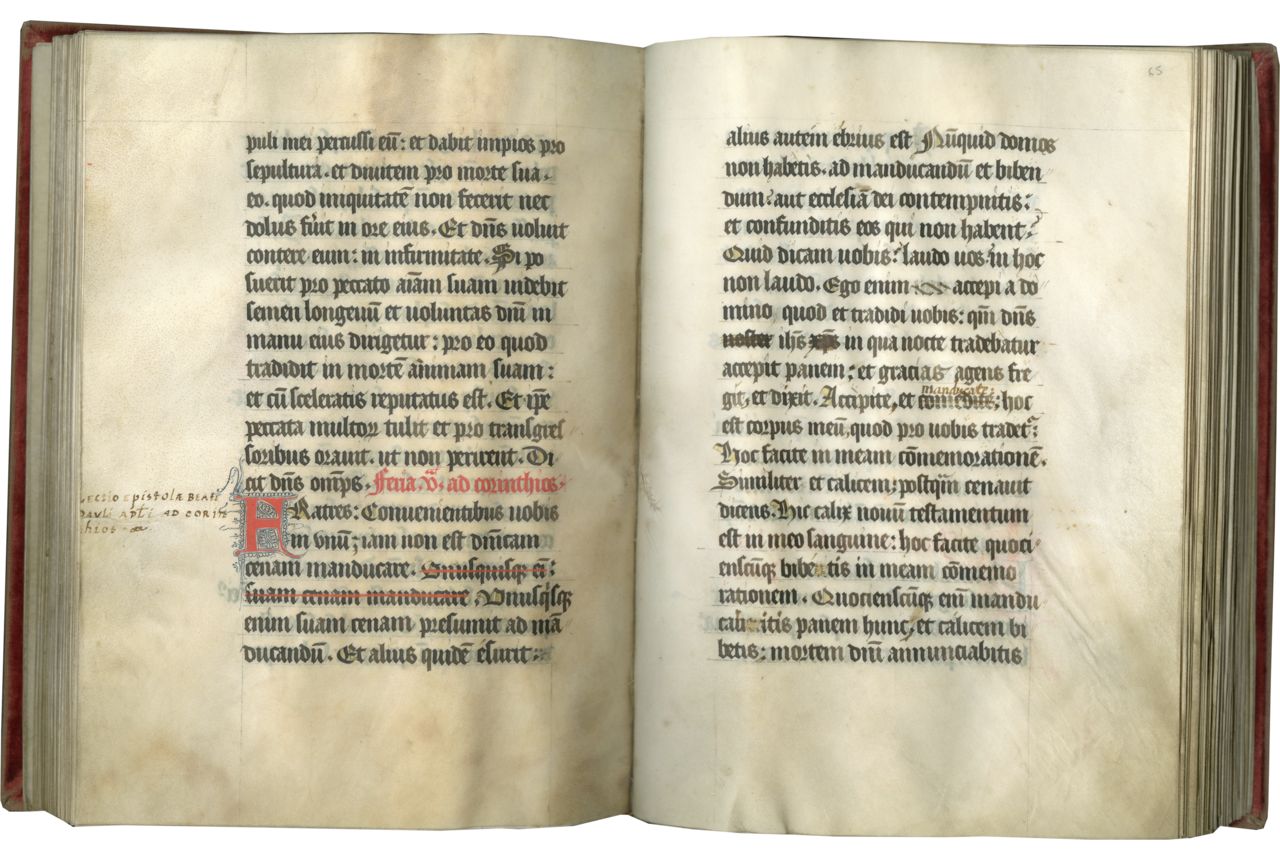 puli mei percussi eū: et dabit impios pro
sepultura. et divitem pro morte sua.
eo. quod iniquitatē non fecerit nec
dolus fuit in ore eius. Et dn̄s uoluit
contere eum: in infirmitate. Si po
suerit pro peccato aīam suam uidebit
semen longeuū et uoluntas dn̄i in
manu eius dirigetur: pro eo quod
tradidit in mortē animam suam:
et cū sceleratis reputatus est. Et ip̄e
peccata multoꝝ tulit et pro transgres
soribus orauit. ut non perirent. Di
cit dn̄s om̄ps. Feria .v. ad corinthios.
LECTIO EPISTOLÆ BEATI
PAULI APĪ AD CORIN
thios
FRatres: Conuenientibus uobis
in vnū; iam non est dn̄icam
cenam manducare. Vnusquisqꝫ ei:
suam cenam manducare. Vnusq̄sqꝫ
enim suam cenam presumit ad mā
ducandū. Et alius quidē esurit:
65
alius autem ebrius est Nūquid domos
non habetis. ad manducandū et biben
dum: aut ecclesiā dei contempnitis:
et confunditis eos qui non habent?
Quid dicam uobis? laudo uos in hoc
non laudo. Ego enim accepi a do
mino quod et tradidi uobis: qm̄ dn̄s
noster ih̄s xp̄s in qua nocte tradebatur
accepit panem: et gracias agens fre
manducate:
git, et dixit. Accipite, et comedite; hoc
est corpus meū, quod pro uobis tradet᷑:
Hoc facite in meam cōmemorationē.
Similiter et calicem; postq̄m cenauit
dicens. Hic calix nouū testamentum
est in meo sanguine: hoc facite quoci
enscūqꝫ bibetis in meam cōmemo
rationem. Quocienscūqꝫ enī mandu
cabitis panem hunc, et calicem bi
betis: mortem dn̄i annunciabitis